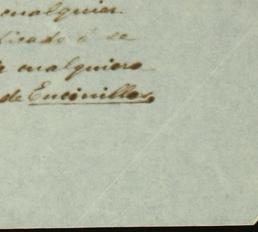 cualquier
ficado á se
cualquiera
de Encinillas